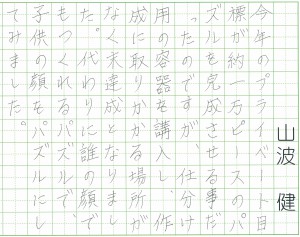 山波 健
今年のプライベート目
標が約一万ピースのパ
ズルを完成させる事だ
ったのですが、仕分け
用の容器を講入し、作
成に取りかかる場所が
なく未達成となりまし
た。代わりに誰の顔で
もつくれるパズルで、
子供の顔をパズルにし
てみました。